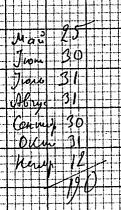 Май 25
Июнь 30
Июль 31
Август 31
Сентяр 30
Окт 31
Ноябр 12
190